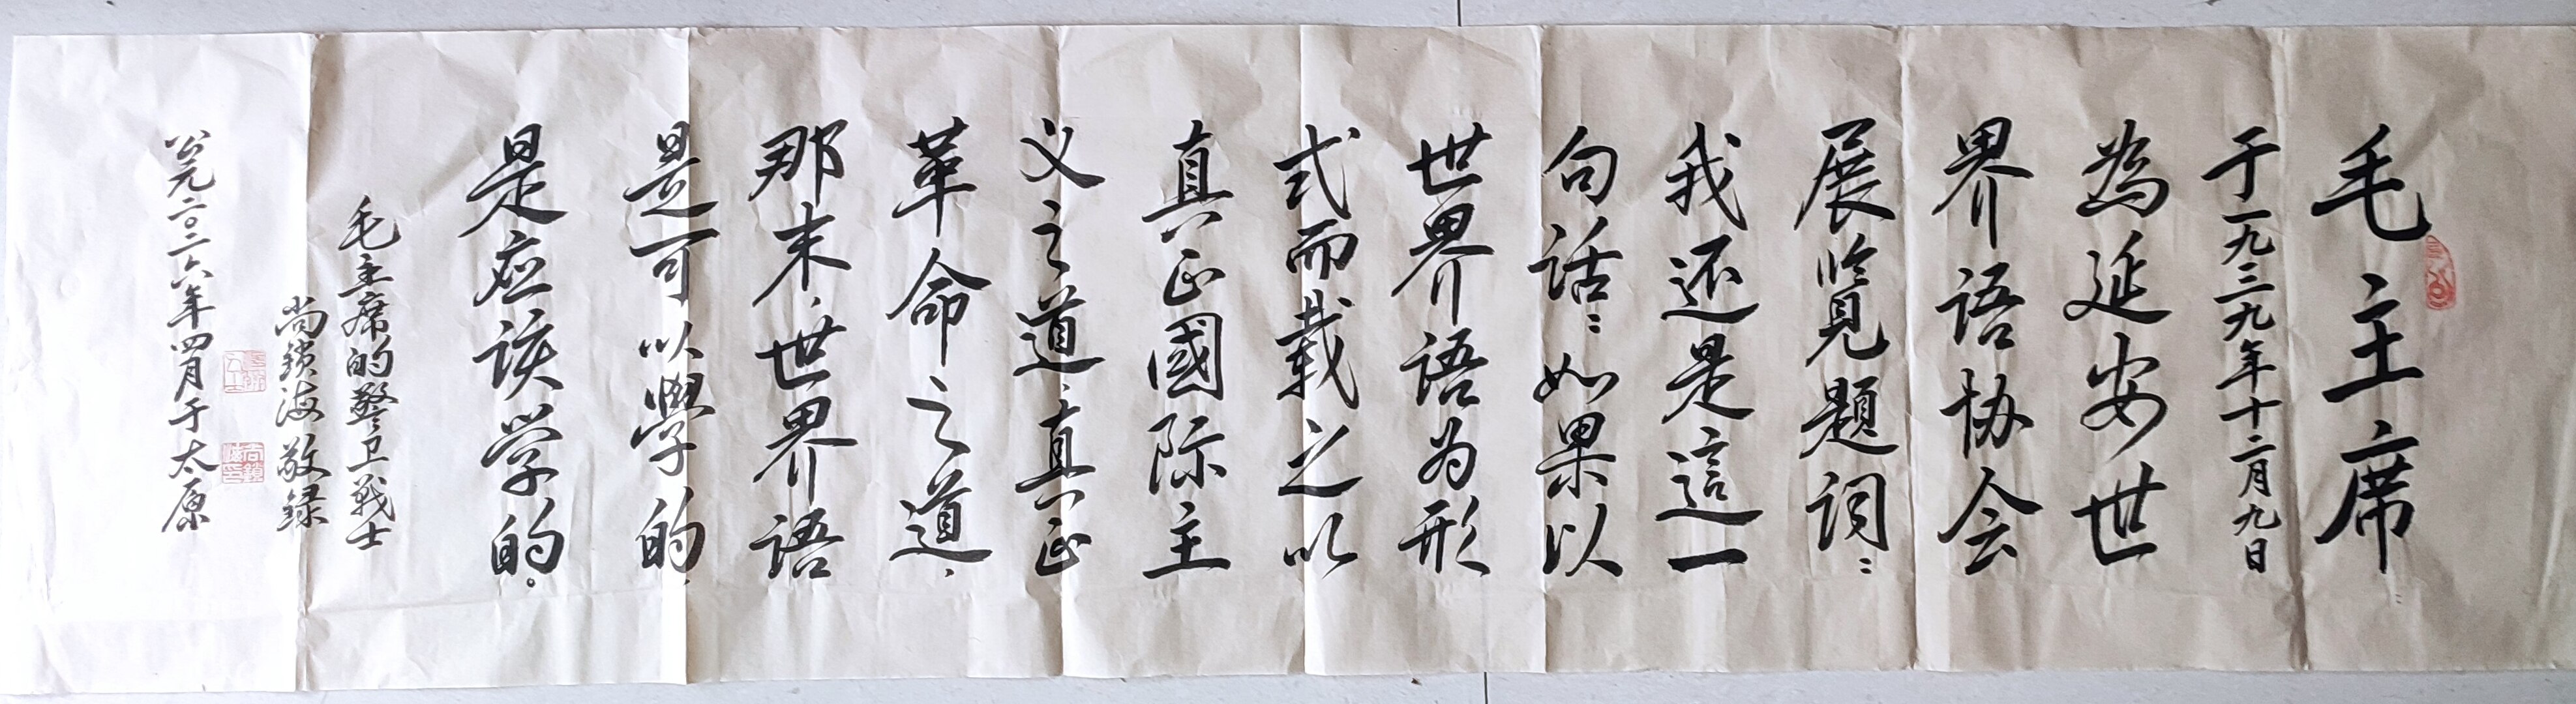 毛主席
于一九三九年十二月九日
為延安世
界语协会
展览題词：
我还是這一
句话：如果以
世界语为形
式而载之以
真正國际主
义之道、真正
革命之道、
那末、世界语
是可以學的、
是应该学的。
毛主席的警卫战士
尚鎖海敬録
公元二〇二六年四月于太原
尚鎖海印